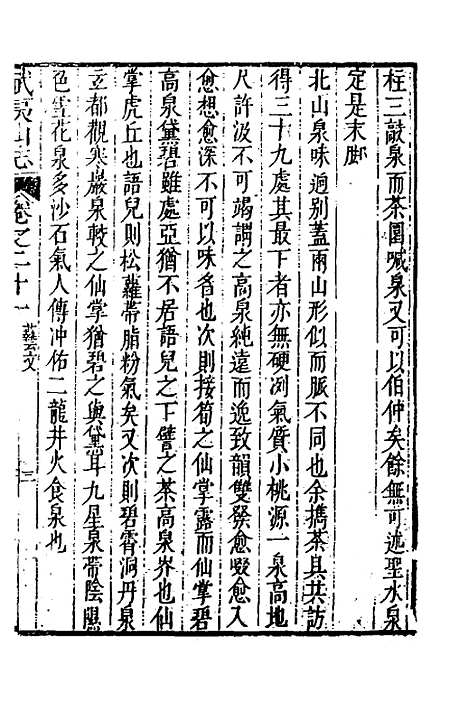 柱三敲泉而茶園喊泉又可以伯仲矣餘無可述聖水泉
定是末脚
北山泉味迥别蓋兩山形似而脈不同也余擕茶具共訪
得三十九處其最下者亦無硬冽氣質小桃源一泉高地
尺許汲不可竭謂之高泉純遠而逸致韻雙發愈啜愈入
愈想愈深不可以味名也次則接筍之仙掌露而仙掌碧
高泉黛碧雖處亞猶不居語兒之下譬之茶高泉界也仙
掌虎丘也語兒則松蘿帶脂粉氣矣又次則碧霄洞丹泉
玄都觀寒巖泉較之仙掌猶碧之與黛耳九星泉帶陰慝
色雪花泉多沙石氣人傳冲佑二龍井火食泉也
武夷山志 卷之二十一 藝文 三